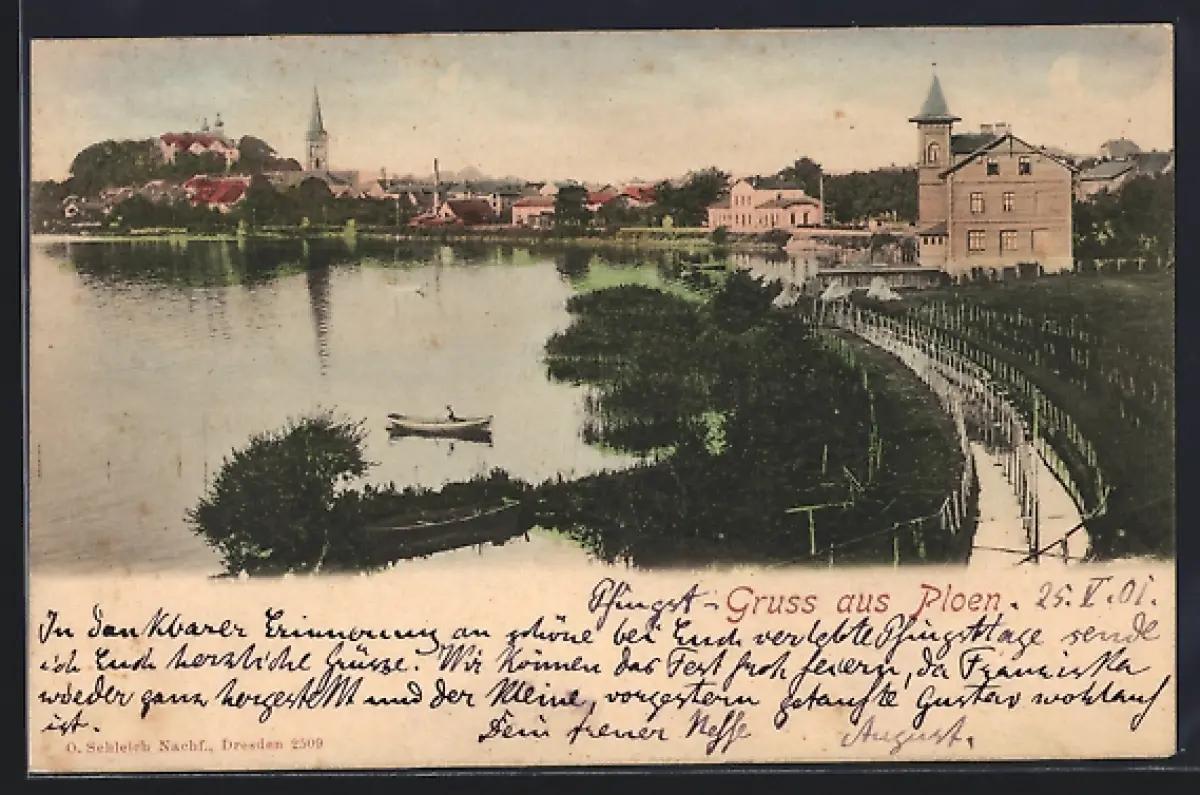 Pfingst - Gruss aus Ploen. 25.V.01.
In dankbarer Erinnerung an schöne bei Euch verlebte Pfingsttage sende
ich Euch herzliche Grüsse. Wir können das Fest froh feiern, da Franziska
wieder ganz hergestellt und der kleine, vorgestern getaufte Gustav wohlauf
ist. Dein treuer Neffe August.
O. Schleich Nachf., Dresden 2509